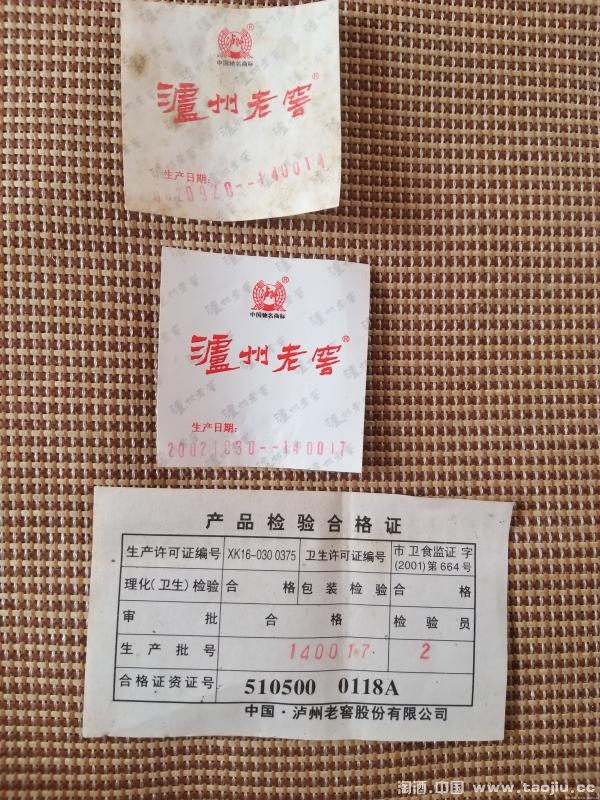 中国驰名商标
泸州老窖®
生产日期:
020920--140014
®
中国驰名商标
泸州老窖®
生产日期:
20021030--140017
产品检验合格证
生产许可证编号 XK16-030 0375 卫生许可证编号 市卫食监证字(2001)第664号
理化(卫生)检验 合格 包装检验 合格
审批 合格 检验员
生产批号 140017 2
合格证资证号 510500 0118A
中国·泸州老窖股份有限公司
淘酒.中国 www.taojiu.cc